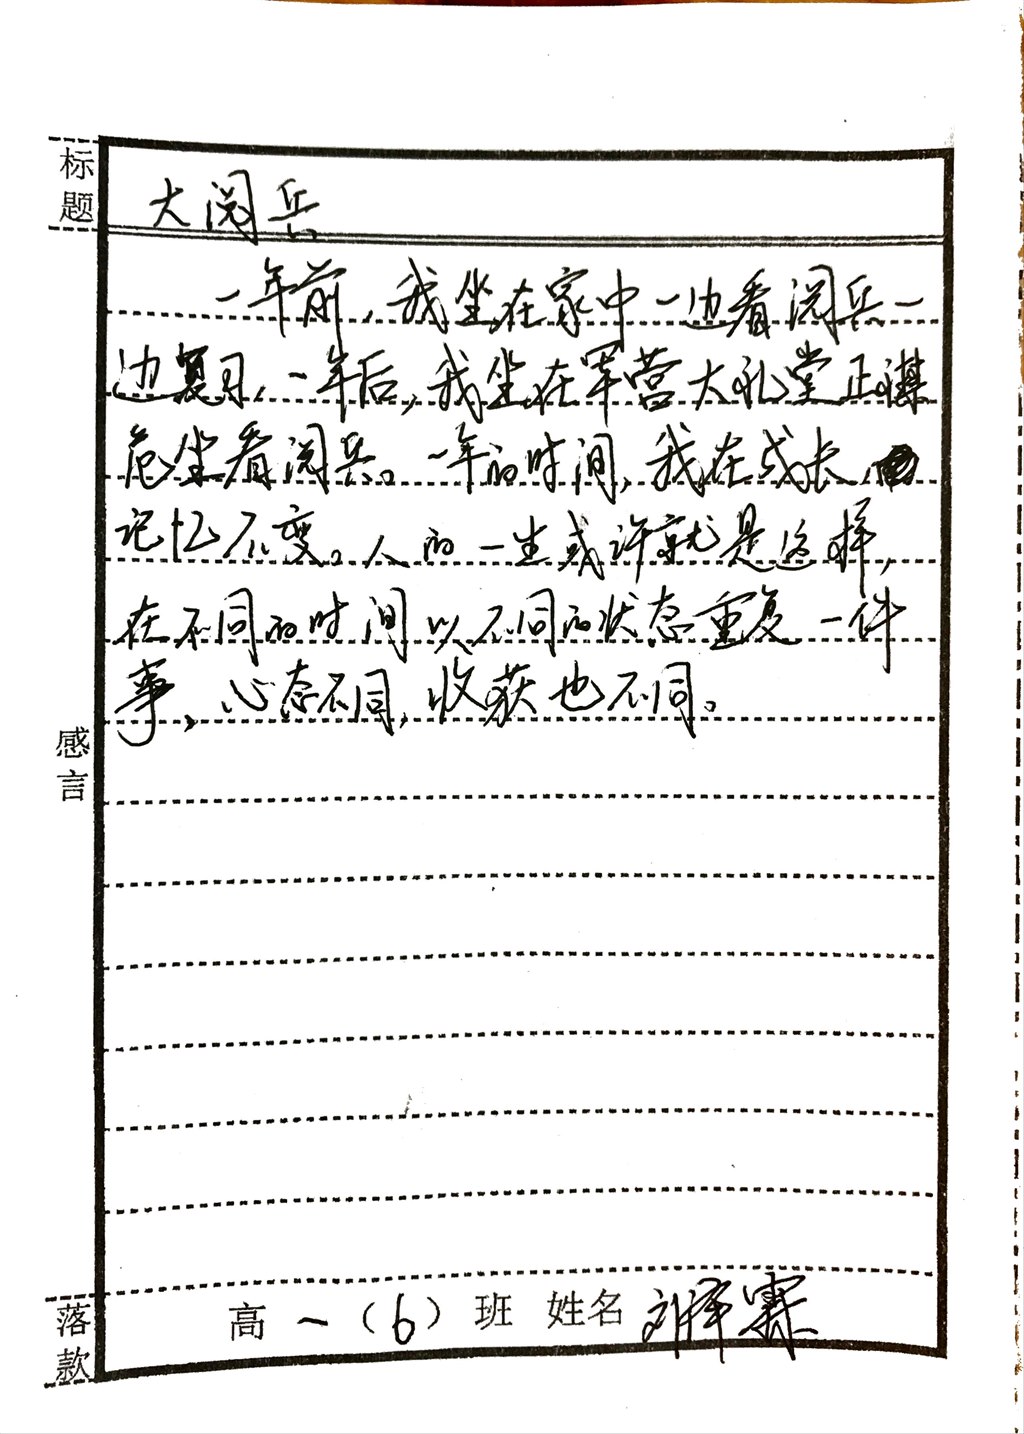 标题
大阅兵
一年前，我坐在家中一边看阅兵一
边复习，一年后，我坐在军营大礼堂正襟
危坐看阅兵。一年的时间，我在成长，
记忆不变。人的一生或许就是这样，
在不同的时间以不同的状态重复一件
事，心态不同，收获也不同。
感言
落款
高一（6）班 姓名 刘军霖